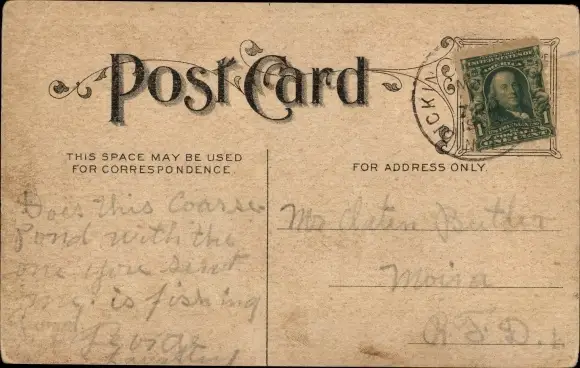 Post Card
THIS SPACE MAY BE USED
FOR CORRESPONDENCE.
FOR ADDRESS ONLY.
UNITED STATES OF
AMERICA
1
Does this Coarse
Pond with the
one you sent
me. is fishing
George
Mr Butler
Moira
R.F.D. 1